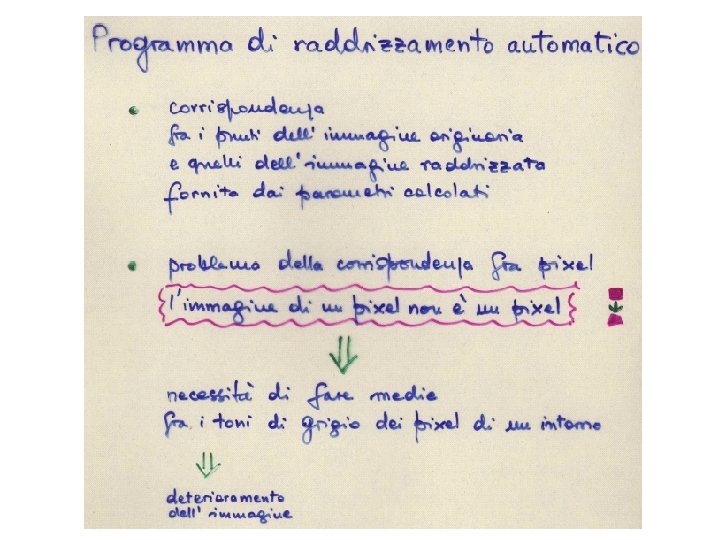 Programma di raddrizzamento automatico
• corrispondenza
fra i punti dell'immagine originaria
e quelli dell'immagine raddrizzata
fornita dai parametri calcolati
• problema della corrispondenza fra pixel
l'immagine di un pixel non è un pixel
necessità di fare medie
fra i toni di grigio dei pixel di un intorno
deterioramento
dell'immagine